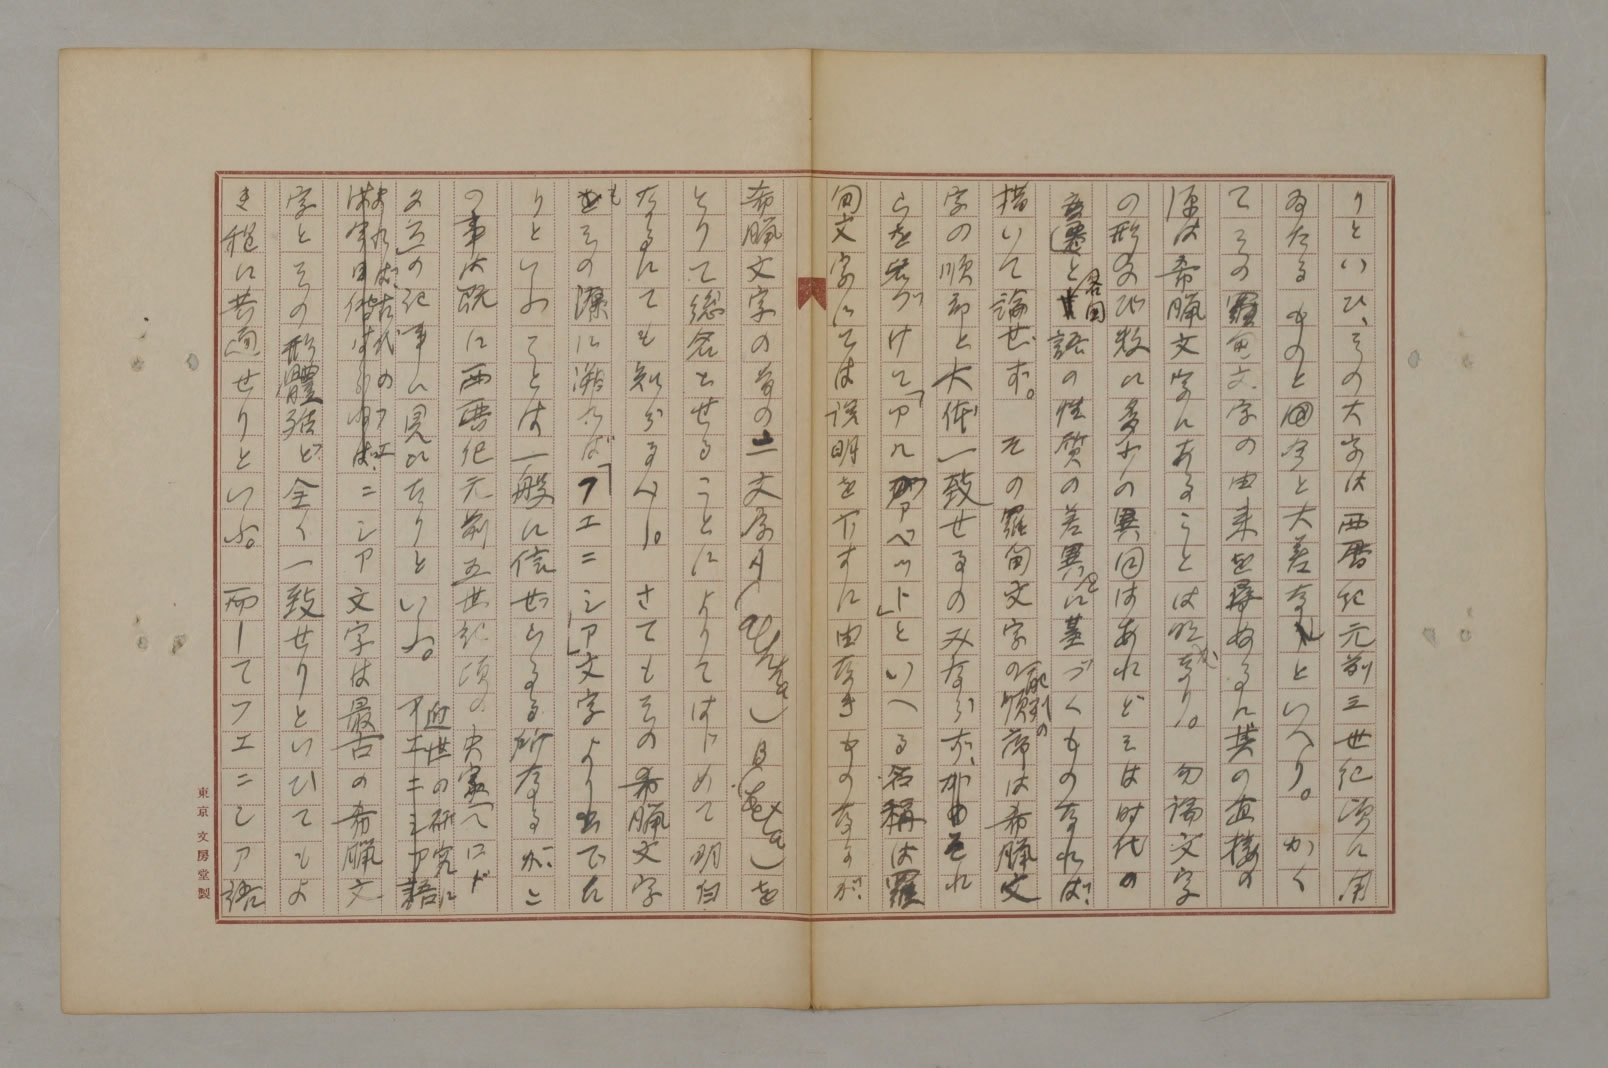 りといひ、その大字は西暦紀元前三世紀頃に用
ゐたるものと国今と大差なしといへり。かく
てその羅甸文字の由来を尋ぬるに其の直接の
源は希臘文字にあることは明かなり。勿論文字
の形及び数に多少の異同はあれどそは時代の
変遷と各国語の性質の差異とに基づくものなれば
措いて論ぜず。その羅甸文字の配列の順序は希臘文
字の順序と大体一致せるのみならず、それ
らを名づけて「アルファベット」といへる名称は羅
甸文字にては説明を下すに由なきものなるが、
希臘文字の首の二文字
とりて総名とせることによりてはじめて明白
なるにても知らるべし。さてもその希臘文字
もその源に溯れば「フェニシア」文字より出でた
りといふことは一般に信ぜらるる所なるが、こ
の事は既に西暦紀元前五世紀頃の史家ヘロド
タス」の記事に見えたりといふ。近世の研究に
よれば古代のフェニシア文字は最古の希臘文
字とその形體殆ど全く一致せりといひてもよ
き程に共通せりといふ。而してフエニシア語
東京 文房堂製